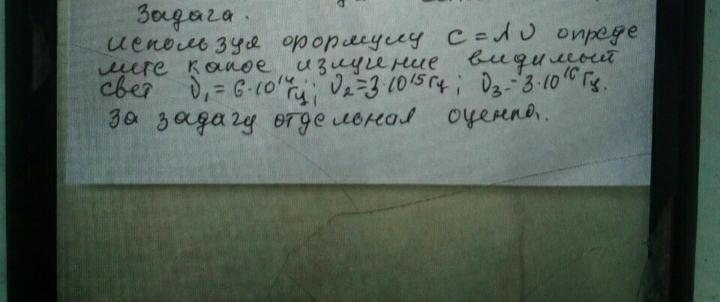 Задача.
используя формулу c = λν опреде
лите какое излучение видимый
свет ν₁ = 6·10¹⁴ Гц; ν₂ = 3·10¹⁵ Гц; ν₃ = 3·10¹⁶ Гц.
За задачу отдельная оценка.